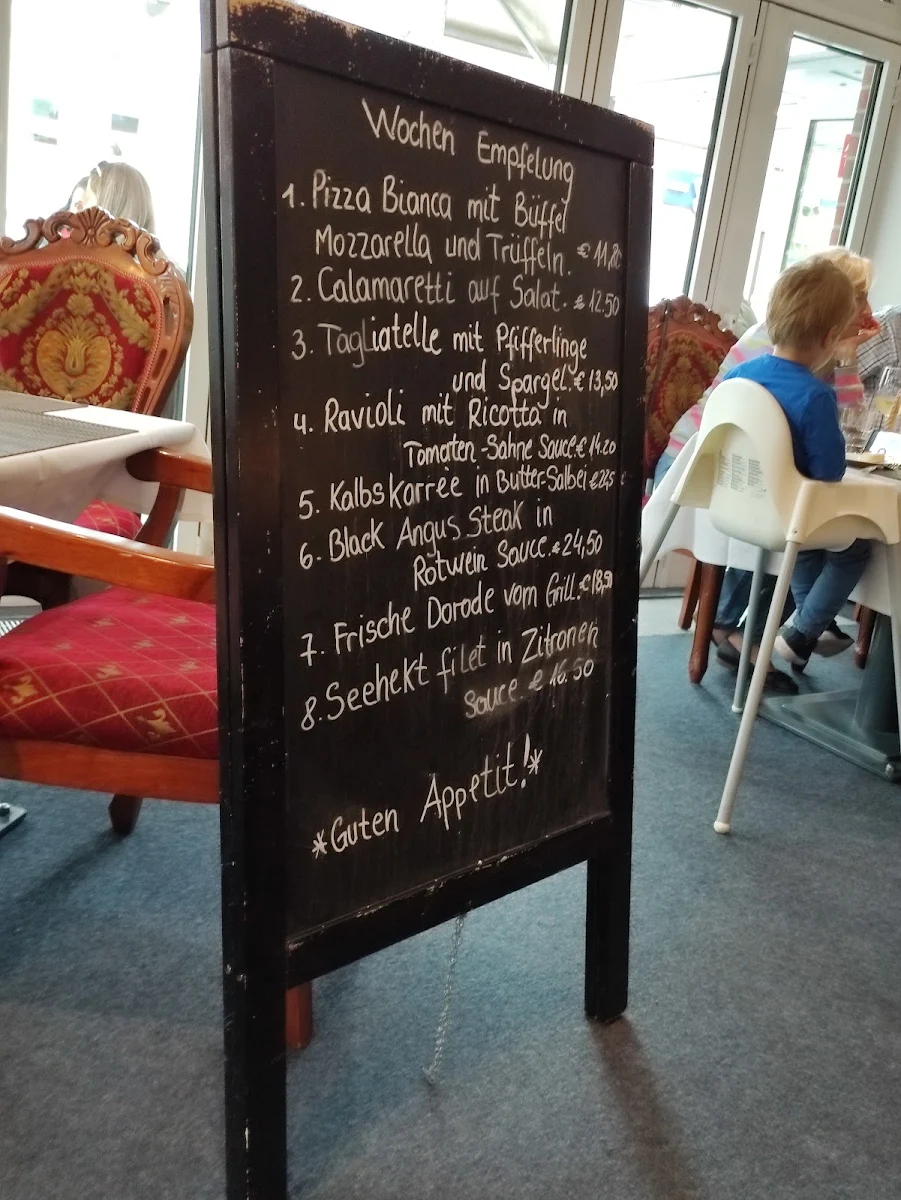 Wochen Empfelung
1. Pizza Bianca mit Büffel
Mozzarella und Trüffeln. € 11,80
2. Calamaretti auf Salat. € 12.50
3. Tagliatelle mit Pfifferlinge
und Spargel. € 13,50
4. Ravioli mit Ricotta in
Tomaten-Sahne Sauce. € 14.20
5. Kalbskorrèe in Butter-Salbei
6. Black Angus Steak in
Rotwein Sauce. € 24,50
7. Frische Dorode vom Grill.
8. Seehekt filet in Zitronen
Sauce. € 16.50
*Guten Appetit!*